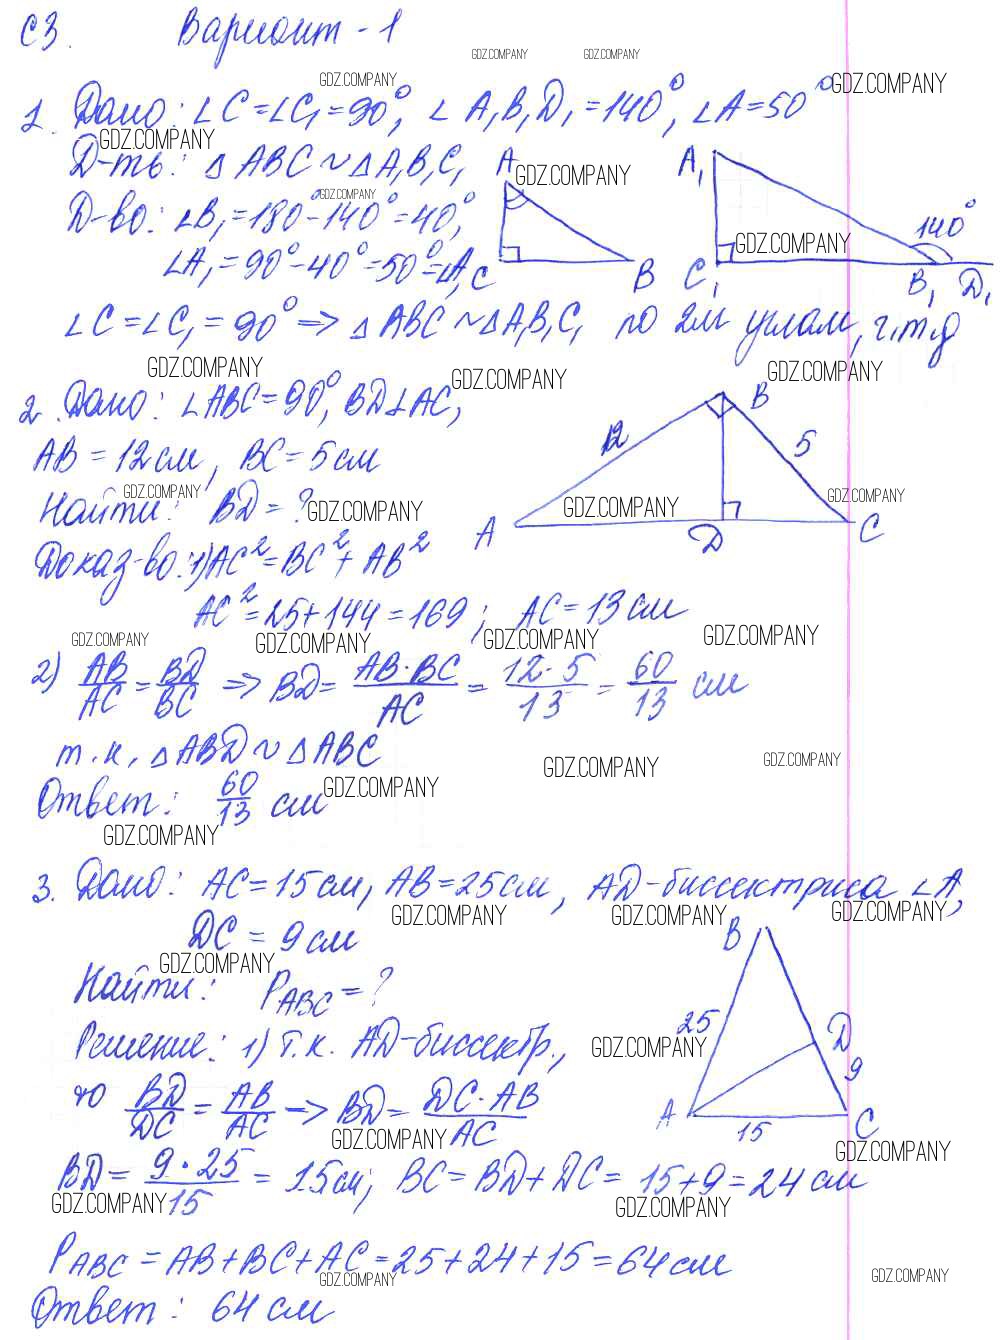 С3. Вариант - 1
GDZ.COMPANY GDZ.COMPANY
GDZ.COMPANY GDZ.COMPANY
1. Дано: ∠C=∠C₁=90°, ∠A₁B₁D₁=140°, ∠A=50°
GDZ.COMPANY
Д-ть: △ABC ~ △A₁B₁C₁
A GDZ.COMPANY A₁
GDZ.COMPANY
Д-во: ∠B₁=180°-140°=40°,
140°
GDZ.COMPANY
∠A₁=90°-40°=50°=∠A,
C B C₁ B₁ D₁
∠C=∠C₁=90° => △ABC ~ △A₁B₁C₁ по 2м углам, ч.т.д
GDZ.COMPANY GDZ.COMPANY GDZ.COMPANY
2. Дано: ∠ABC=90°, BD⊥AC,
B
AB=12см, BC=5см
12 5
GDZ.COMPANY GDZ.COMPANY
Найти: BD=?
GDZ.COMPANY GDZ.COMPANY
A D C
Доказ-во: 1) AC²=BC²+AB²
AC²=25+144=169; AC=13см
GDZ.COMPANY GDZ.COMPANY GDZ.COMPANY GDZ.COMPANY
2) AB/AC = BD/BC => BD = AB·BC/AC = 12·5/13 = 60/13 см
т.к. △ABD ~ △ABC
GDZ.COMPANY GDZ.COMPANY
Ответ: 60/13 см
GDZ.COMPANY
GDZ.COMPANY
3. Дано: AC=15см, AB=25см, AD-биссектриса ∠A,
GDZ.COMPANY GDZ.COMPANY GDZ.COMPANY
DC = 9см
B
GDZ.COMPANY
Найти: P ABC = ?
25
Решение: 1) т.к. AD-биссектр.,
GDZ.COMPANY
D
9
то BD/DC = AB/AC -> BD = DC·AB/AC
A 15 C
GDZ.COMPANY GDZ.COMPANY
BD = 9·25/15 = 15см; BC=BD+DC= 15+9=24см
GDZ.COMPANY GDZ.COMPANY
P ABC = AB+BC+AC=25+24+15=64см
GDZ.COMPANY GDZ.COMPANY
Ответ: 64см